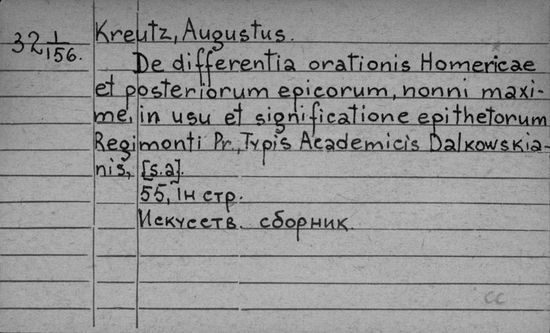 32 1/156.
Kreutz, Augustus.
De differentia orationis Homericae
et posteriorum epicorum, nonni maxi-
me, in usu et significatione epithetorum
Regimonti Pr., Typis Academicis Dalkowskia-
nis, [s.a].
55, Iн стр.
Искусств. сборник.
CC